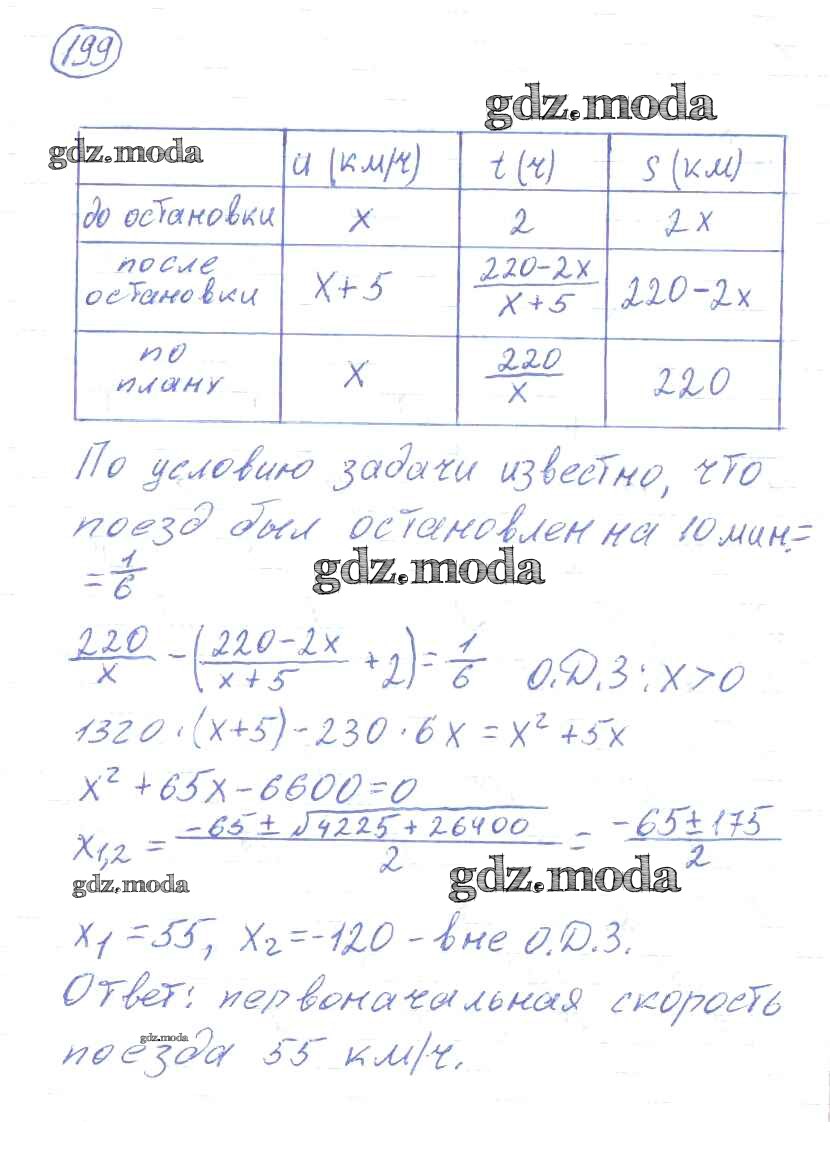 199
gdz.moda
gdz.moda
u (км/ч) t (ч) s (км)
до остановки x 2 2x
после остановки x+5 220-2x/x+5 220-2x
по плану x 220/x 220
По условию задачи известно, что
поезд был остановлен на 10 мин.=
=1/6
gdz.moda
220/x - (220-2x/x+5 + 2) = 1/6 О.Д.З: x>0
1320·(x+5)-230·6x = x²+5x
x²+65x-6600=0
x1,2 = -65±√4225+26400/2 = -65±175/2
gdz.moda
gdz.moda
x1=55, x2=-120 - вне О.Д.З.
Ответ: первоначальная скорость
gdz.moda
поезда 55 км/ч.